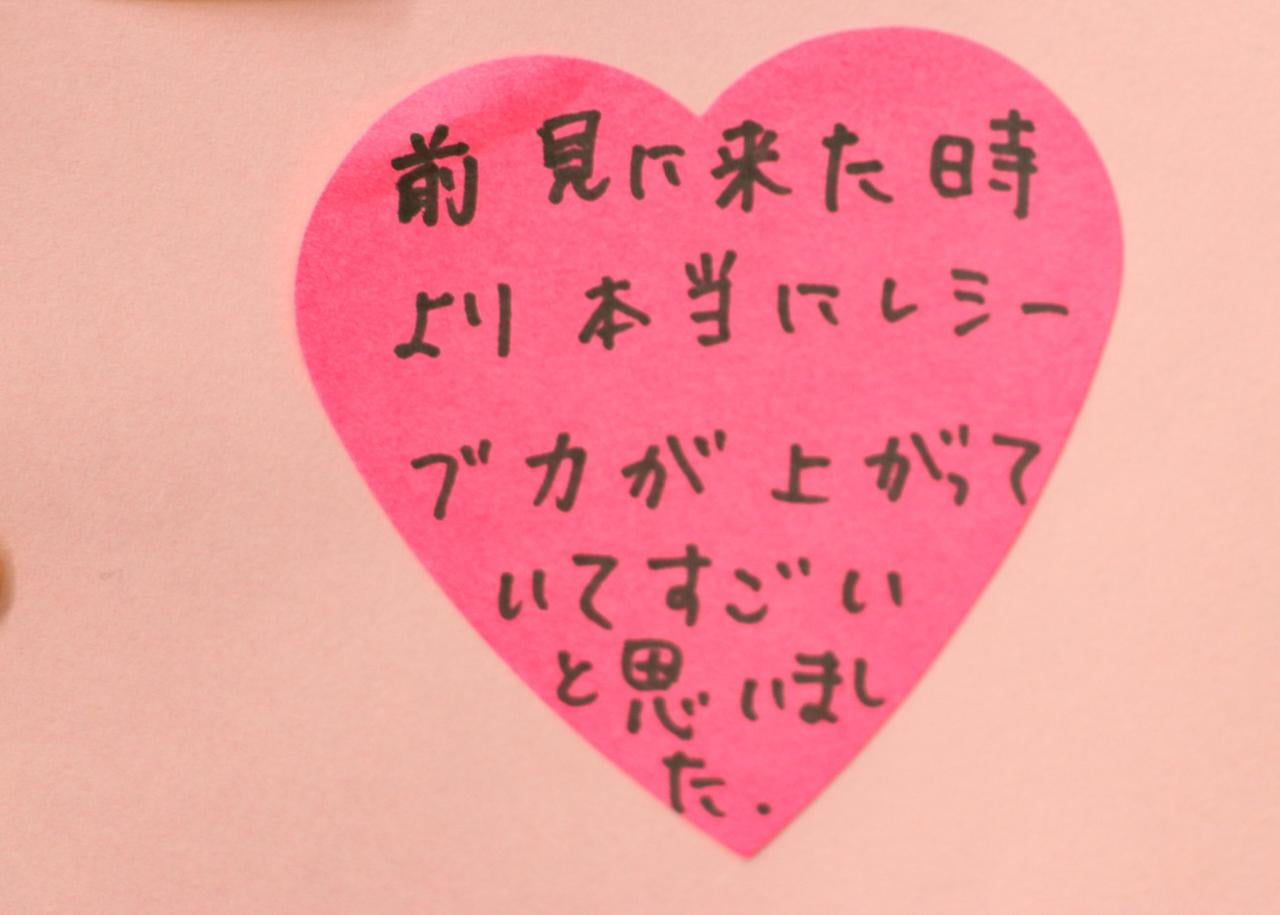 前見に来た時
より本当にレシー
ブ力が上がって
いてすごい
と思いまし
た.